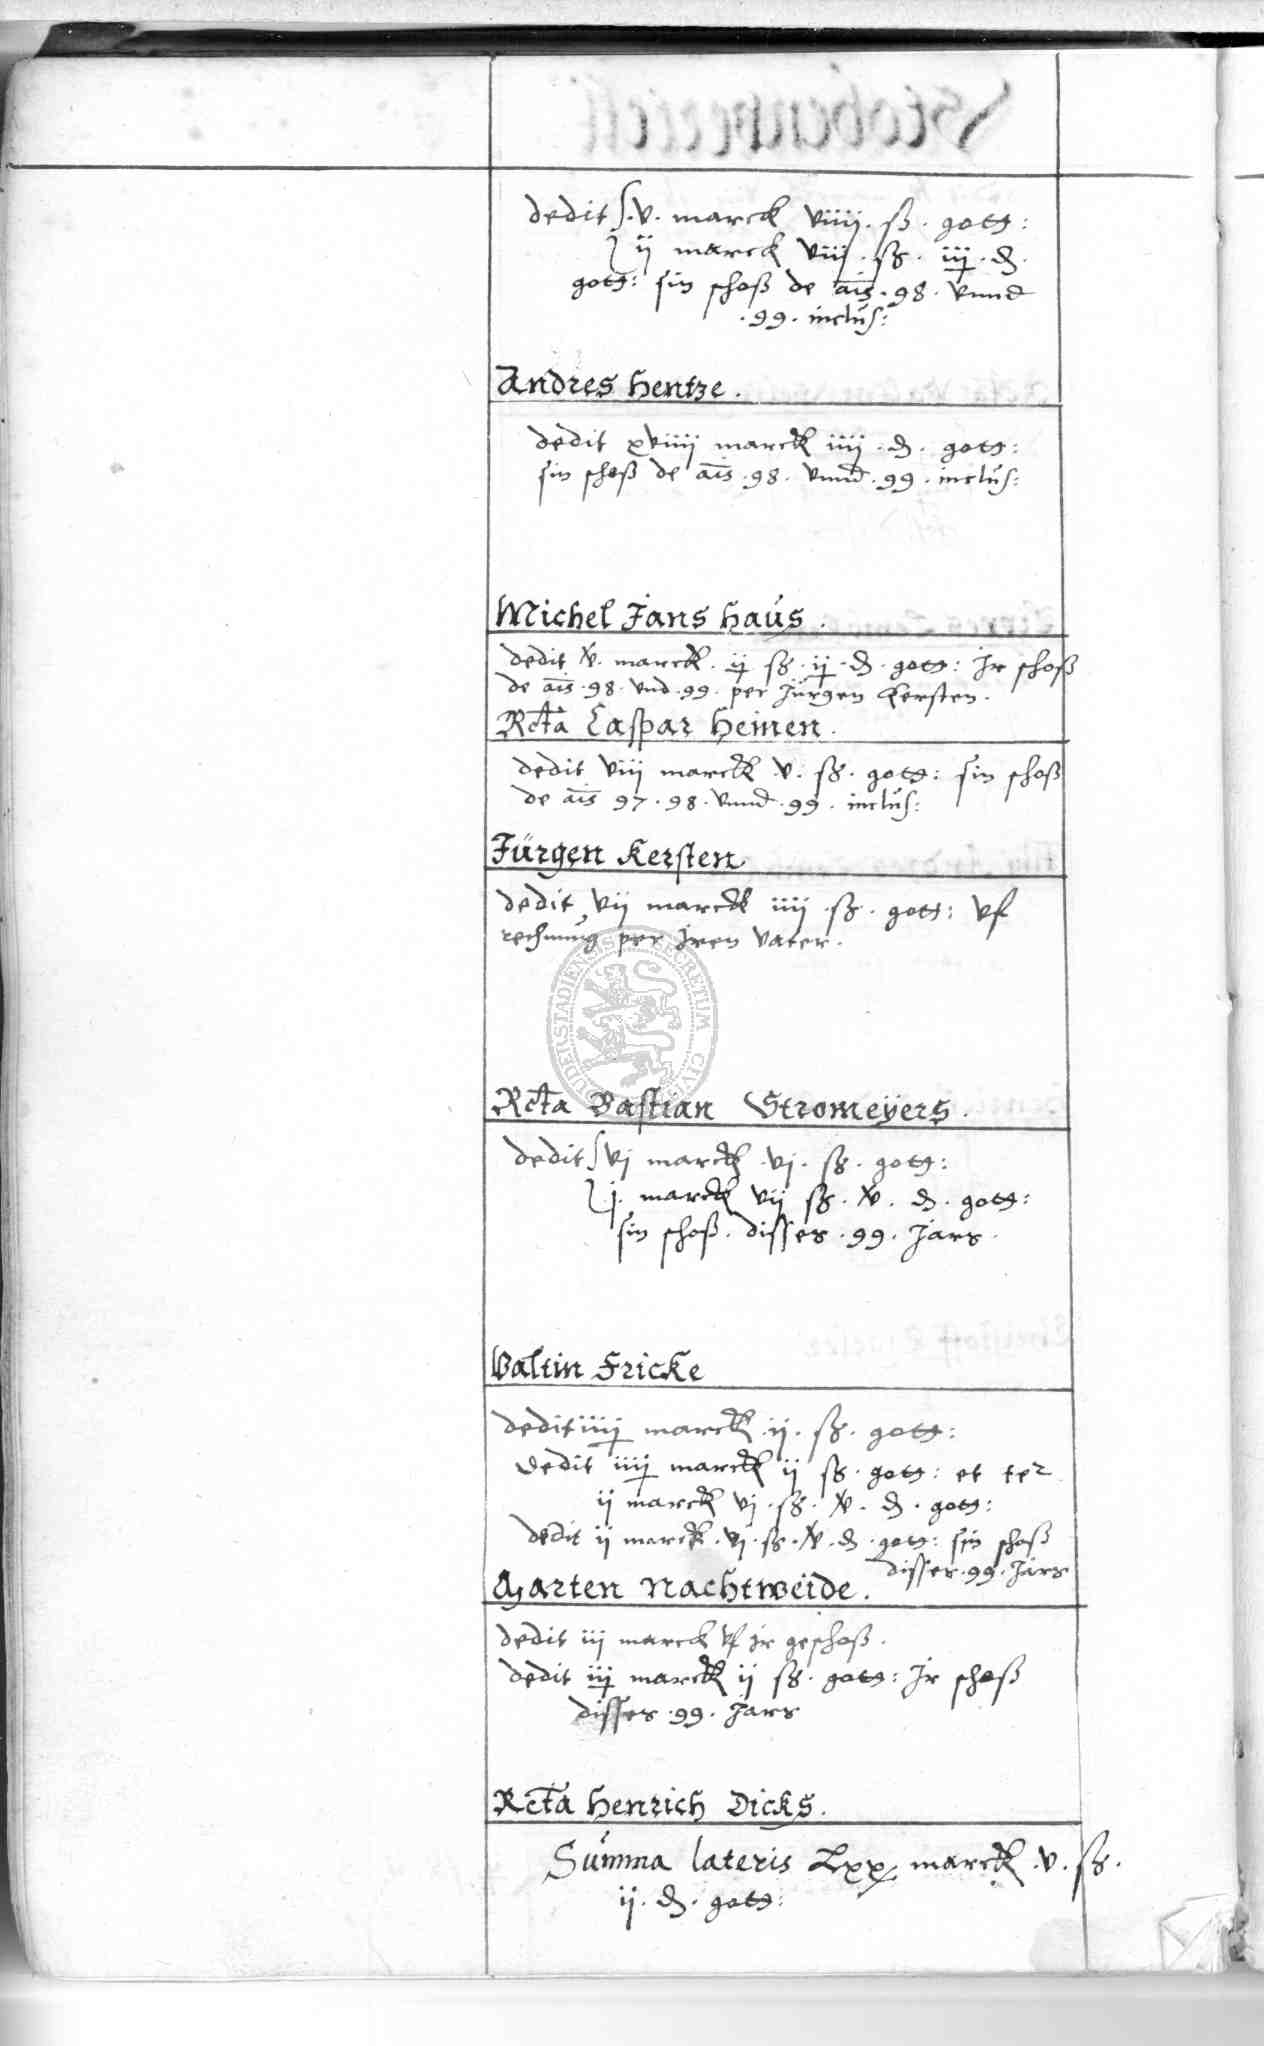 dedit v. marck viiii. ß. gotg:
ij marck viij. ß. iij. d.
gotg: sin schoß de ais. 98. vnnd
.99. inclus:
Andres Hentze.
dedit xviiii marck iiij. d. gotg:
sin schoß de ais. 98. vnnd. 99. inclus:
Michel Jans Haus.
dedit xv. marck. ij ß. ij. d. gotg: Jr schoß
de ais. 98. vnd. 99. per Jürgen Kersten.
Rcta Caspar Heinen.
dedit viij marck v. ß. gotg: sin schoß
de ais 97. 98. vnnd. 99. inclus:
Jürgen Kersten
dedit vij marck iiij. ß. gotg: vf
rechnung per Jren vater.
Rcta Bastian Stromeyers.
dedit vj marck vj. ß. gotg:
j. marck vij ß. xv. d. gotg:
sin schoß. disses. 99. Jars.
Valtin Fricke
dedit iiij marck ij. ß. gotg:
dedit iiij marck ij ß. gotg: et ter
ij marck vj. ß. xv. d. gotg:
dedit ij marck. vj. ß. xv. d. gotg: sin schoß
disses. 99. Jars
Garten Nachtweide.
dedit iij marck vf Jr geschoß.
dedit iij marck ij ß. gotg: Jr schoß
disses. 99. Jars
Rcta Henrich Dicks.
Summa lateris Lxx marck. v. ß.
ij. d. gotg:
DUDERSTADIENSIS SECRETUM CIVI